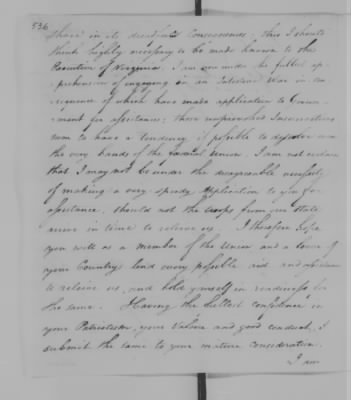 536
Share in its dreadful Consequences, this I should
think highly necessary to be made known to the
Executive of Virginia. I am now under the fullest ap-
prehension of engaging in an Intestine War in con-
sequence of which have made application to Govern-
ment for assistance; those unprovoked Insurrections
seem to have a tendency if possible to dissolve even
the very bands of the Union. I am not certain
that I may not be under the disagreeable necessity
of making a very speedy Application to you for
assistance, should not the troops from our State
arrive in time to relieve us. I therefore hope
you will as a member of the Union and a lover of
your Country lend every possible aid and
to relieve us, and hold yourself in readiness for
the same. Having the fullest confidence in
your Patriotism, your Valour and good conduct, I
submit the same to your mature consideration.
I am